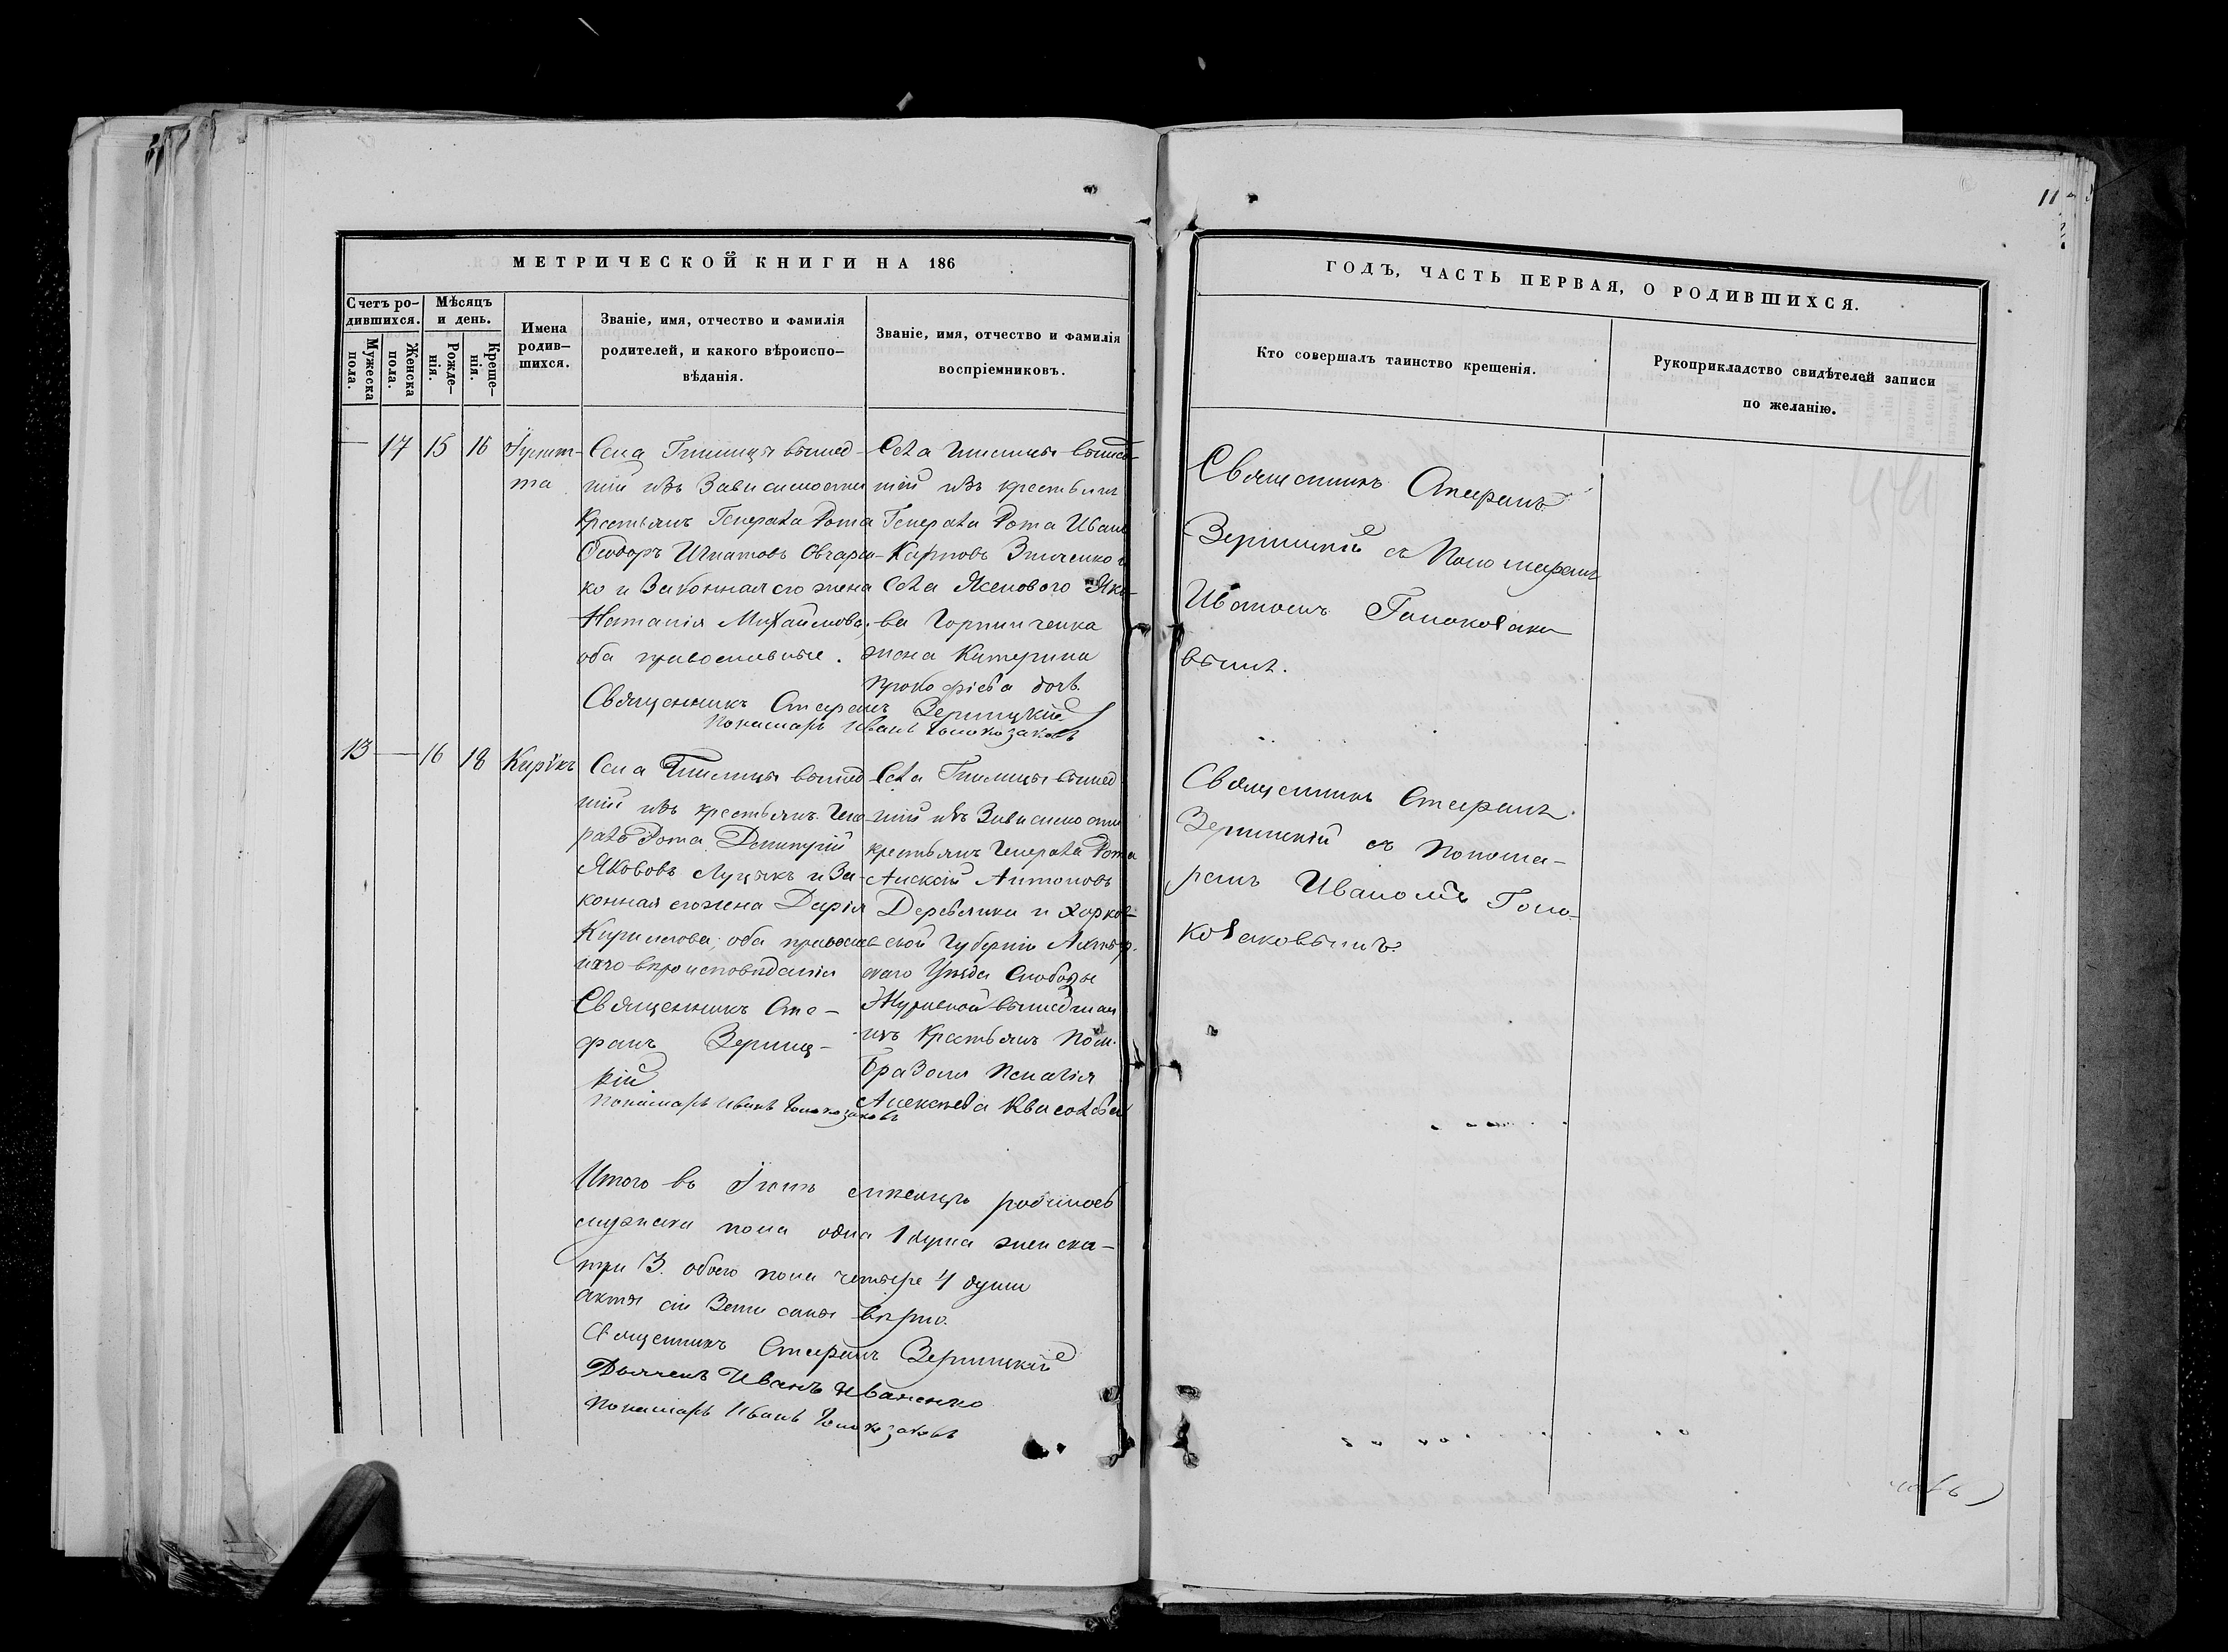 11
МЕТРИЧЕСКОЙ КНИГИ НА 186
ГОДЪ, ЧАСТЬ ПЕРВАЯ, О РОДИВШИХСЯ.
Счетъ ро-
дившихся.
Мужеска
пола.
Женска
пола.
Мѣсяцъ
и день.
Рожде-
нія.
Креще-
нія.
Имена
родив-
шихся.
Званіе, имя, отчество и фамилія
родителей, и какого вѣроиспо-
вѣданія.
Званіе, имя, отчество и фамилія
воспріемниковъ.
Кто совершалъ таинство крещенія.
Рукоприкладство свидѣтелей записи
по желанію.
17 15 16
Іулит-
та
Села Гнилицы вышед-
шій изъ Зависимости
Крестьянъ Генерала Рота
Ѳеодоръ Игнатовъ Овчарен-
ко и Законная его жена
Наталія Михайлова
оба православные.
Села Гнилицы вышед-
шій изъ крестьянъ
Генерала Рота Иванъ
Карповъ Зинченко и
Села Ясенового Яко-
ва Горпинченка
жена Катерина
Прокофіева дочь
Священникъ Стефанъ Верницкій
Пономарь Иванъ Голоказаковъ
Священникъ Стефанъ
Верницкій съ Пономаремъ
Иваномъ Голоказако
вымъ.
13 — 16 18
Кирікъ
Села Гнилицы вышед
шій изъ крестьянъ Гене
рала Рота Димитрій
Якововъ Луцыкъ и За-
конная его жена Дарія
Кирилова, оба православ
наго вѣроисповѣданія
Священникъ Сте-
фанъ Верниц-
кій
Пономарь Иванъ Голоказаковъ
Села Гнилицы вышед
шій изъ Зависимости
крестьянъ Генерала Рота
Алексій Антоновъ
Деревянка и Харков-
ской Губерніи Ахтыр-
скаго Уѣзда Слободы
Журавной вышедшая
изъ Крестьянъ Пом.
Алексѣева
Священникъ Стефанъ
Верницкій съ Понома-
ремъ Иваномъ Голо-
казаковымъ
Итого въ Іюлѣ мѣсяцѣ родилось
мужеска пола одна 1 душа женска-
три 3. обоего пола четыре 4 души
акты сіи Записаны вѣрно.
Священникъ Стефанъ Верницкій
Дьячекъ Иванъ Иваненко
Пономарь Иванъ Голоказаковъ